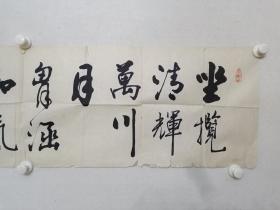 坐攬
清輝
萬川
月
胷涵
和氣